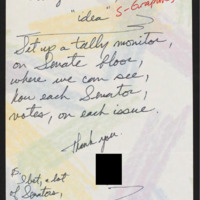 "idea"
Set up a tally monitor,
on Senate floor,
where we can see,
how each Senator,
votes, on each issue.
Thank you.
I bet, a lot
of Senators,